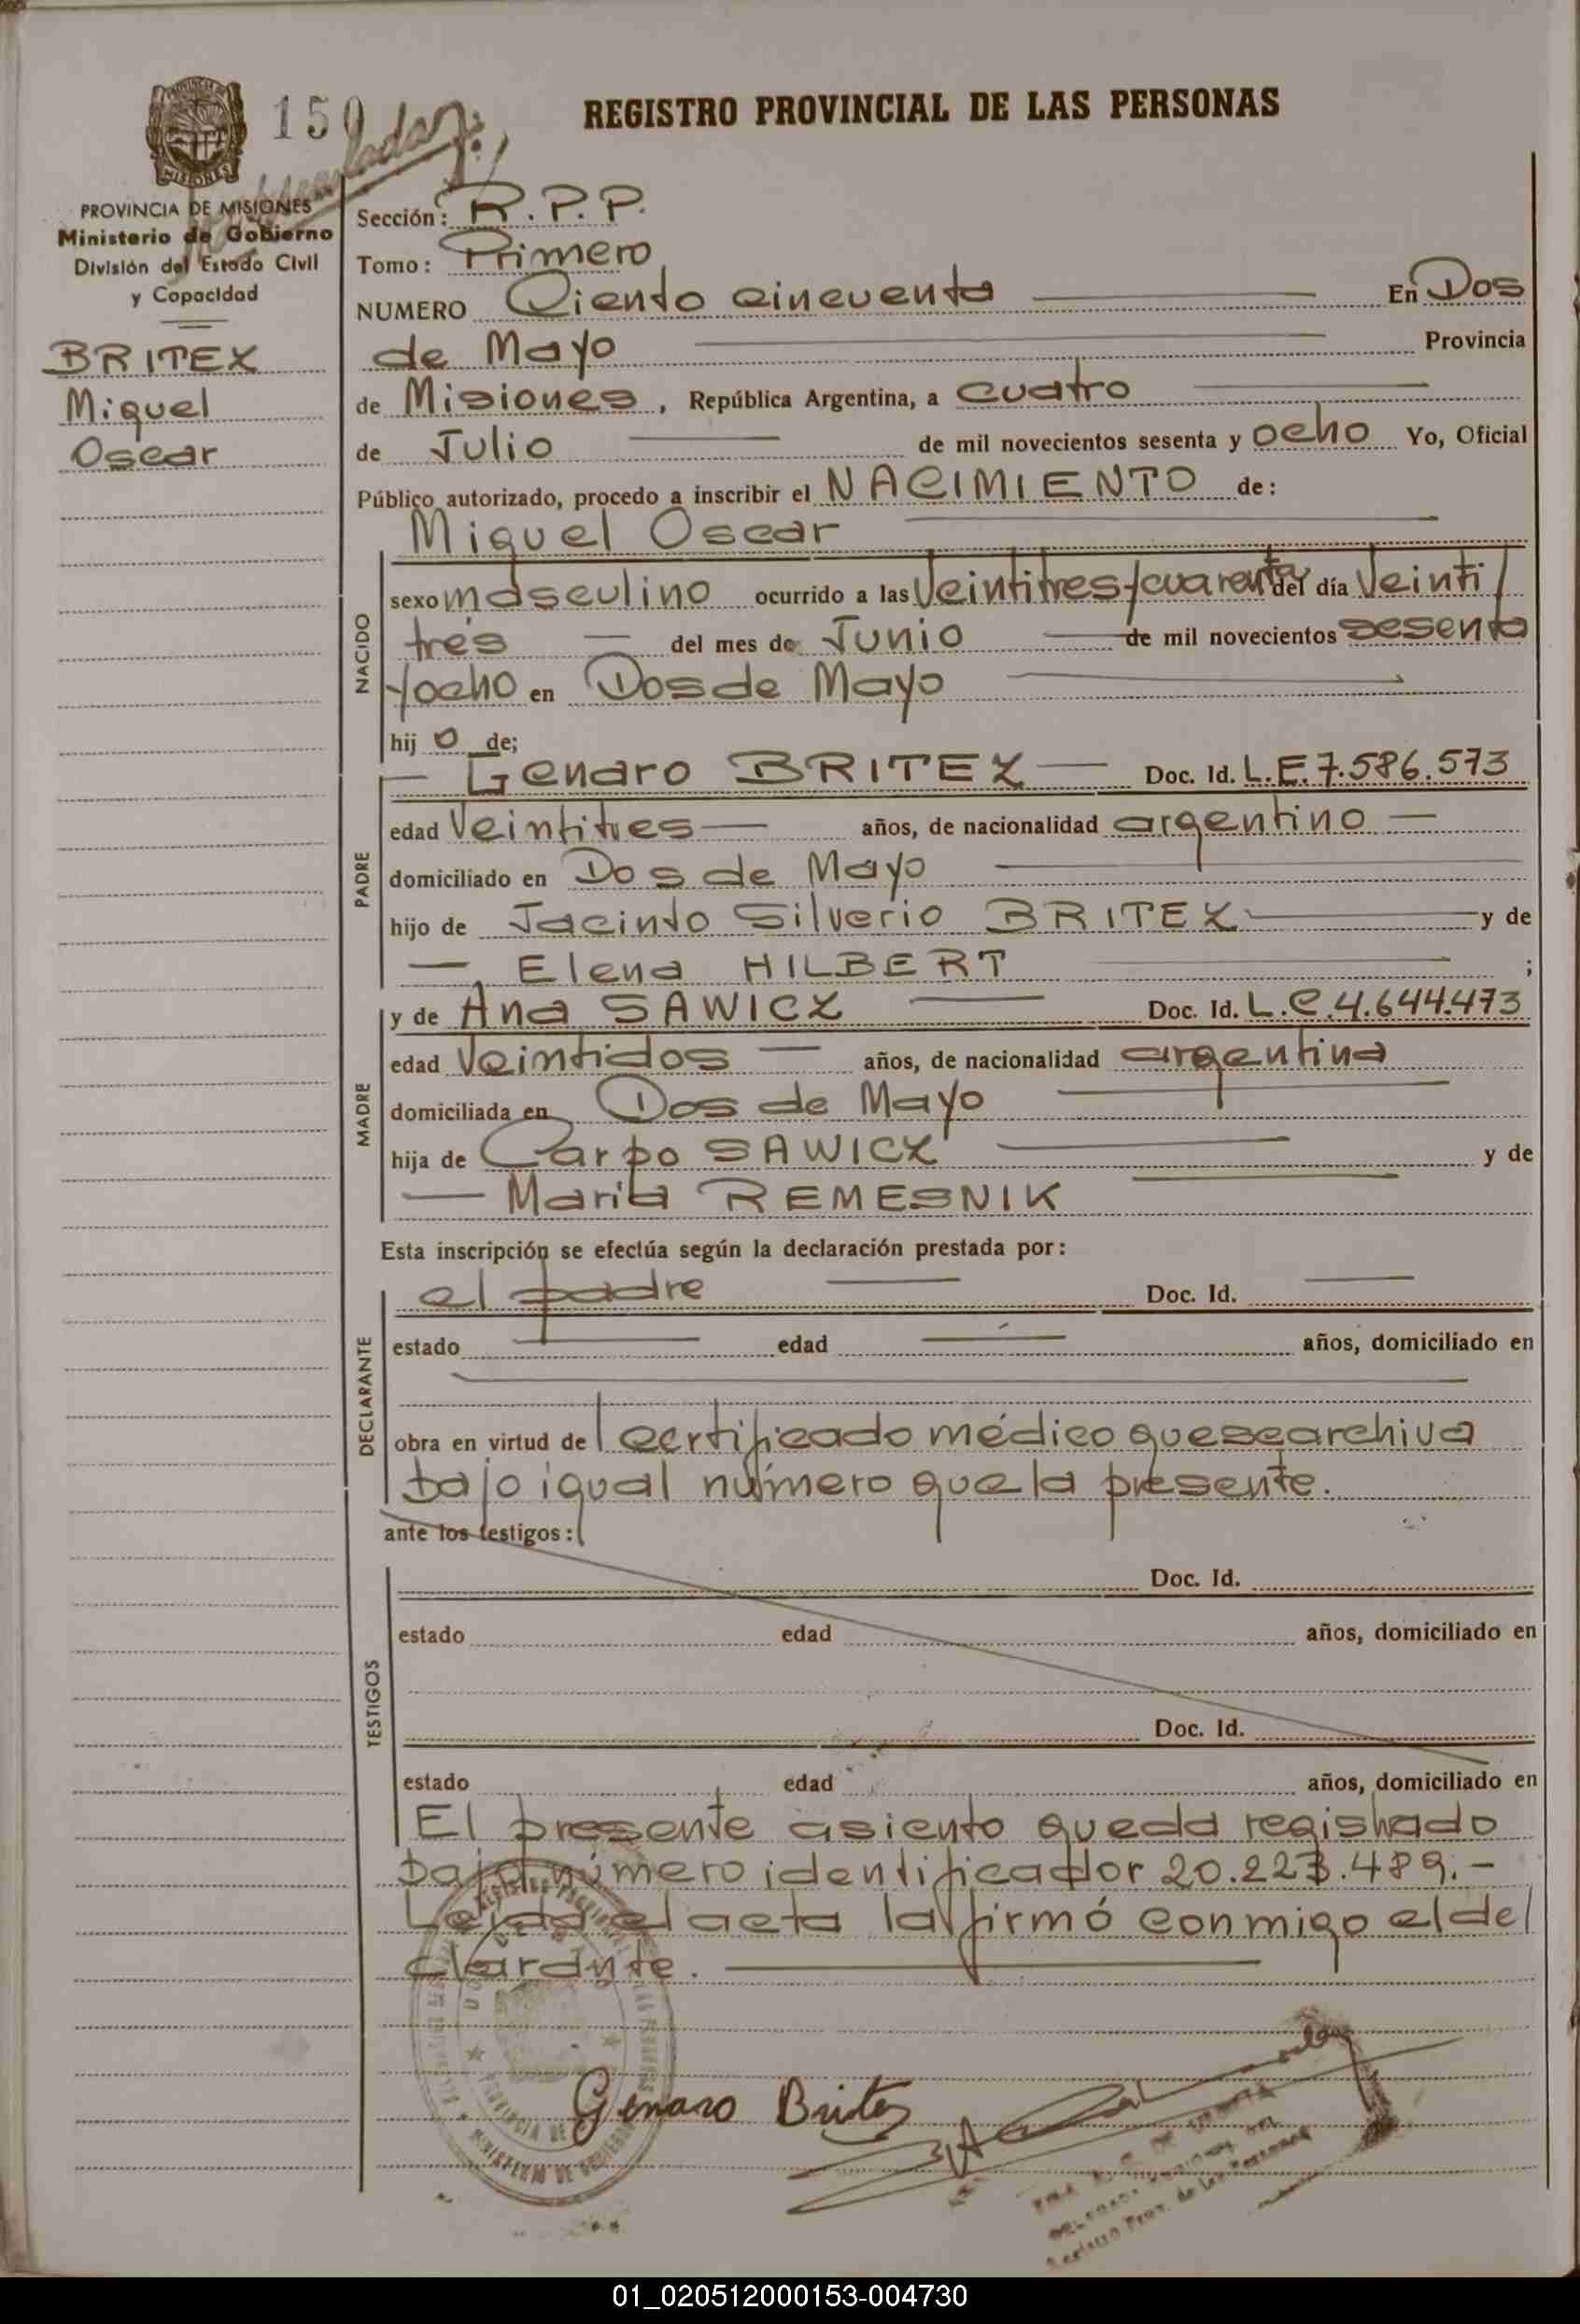 150
REGISTRO PROVINCIAL DE LAS PERSONAS
MISIONES
PROVINCIA DE MISIONES
Ministerio de Gobierno
División del Estado Civil
y Capacidad
BRITEZ
Miguel
Oscar
Sección: R.P.P.
Tomo: Primero
NUMERO Ciento cincuenta En Dos
de Mayo Provincia
de Misiones, República Argentina, a cuatro
de Julio de mil novecientos sesenta y ocho Yo, Oficial
Público autorizado, procedo a inscribir el NACIMIENTO de:
Miguel Oscar
NACIDO
sexo masculino ocurrido a las Veintitres y cuarenta del día Veinti
trés del mes de Junio de mil novecientos sesenta
y ocho en Dos de Mayo
hij o de;
PADRE
Genaro BRITEZ Doc. Id. L.E.7.586.573
edad Veintitres años, de nacionalidad argentino
domiciliado en Dos de Mayo
hijo de Jacinto Silverio BRITEZ y de
Elena HILBERT ;
MADRE
y de Ana SAWICZ Doc. Id. L.C.4.644.473
edad Veintidos años, de nacionalidad argentina
domiciliada en Dos de Mayo
hija de Carpo SAWICZ y de
Maria REMESNIK
Esta inscripción se efectúa según la declaración prestada por:
DECLARANTE
el padre Doc. Id.
estado edad años, domiciliado en
obra en virtud de l certificado médico que se archiva
bajo igual número que la presente.
ante los testigos:
TESTIGOS
Doc. Id.
estado edad años, domiciliado en
Doc. Id.
estado edad años, domiciliado en
El presente asiento queda registrado
bajo número identificador 20.223.489.-
Leída el acta la firmó conmigo el de
clarante.
Genaro Britez
01_020512000153-004730